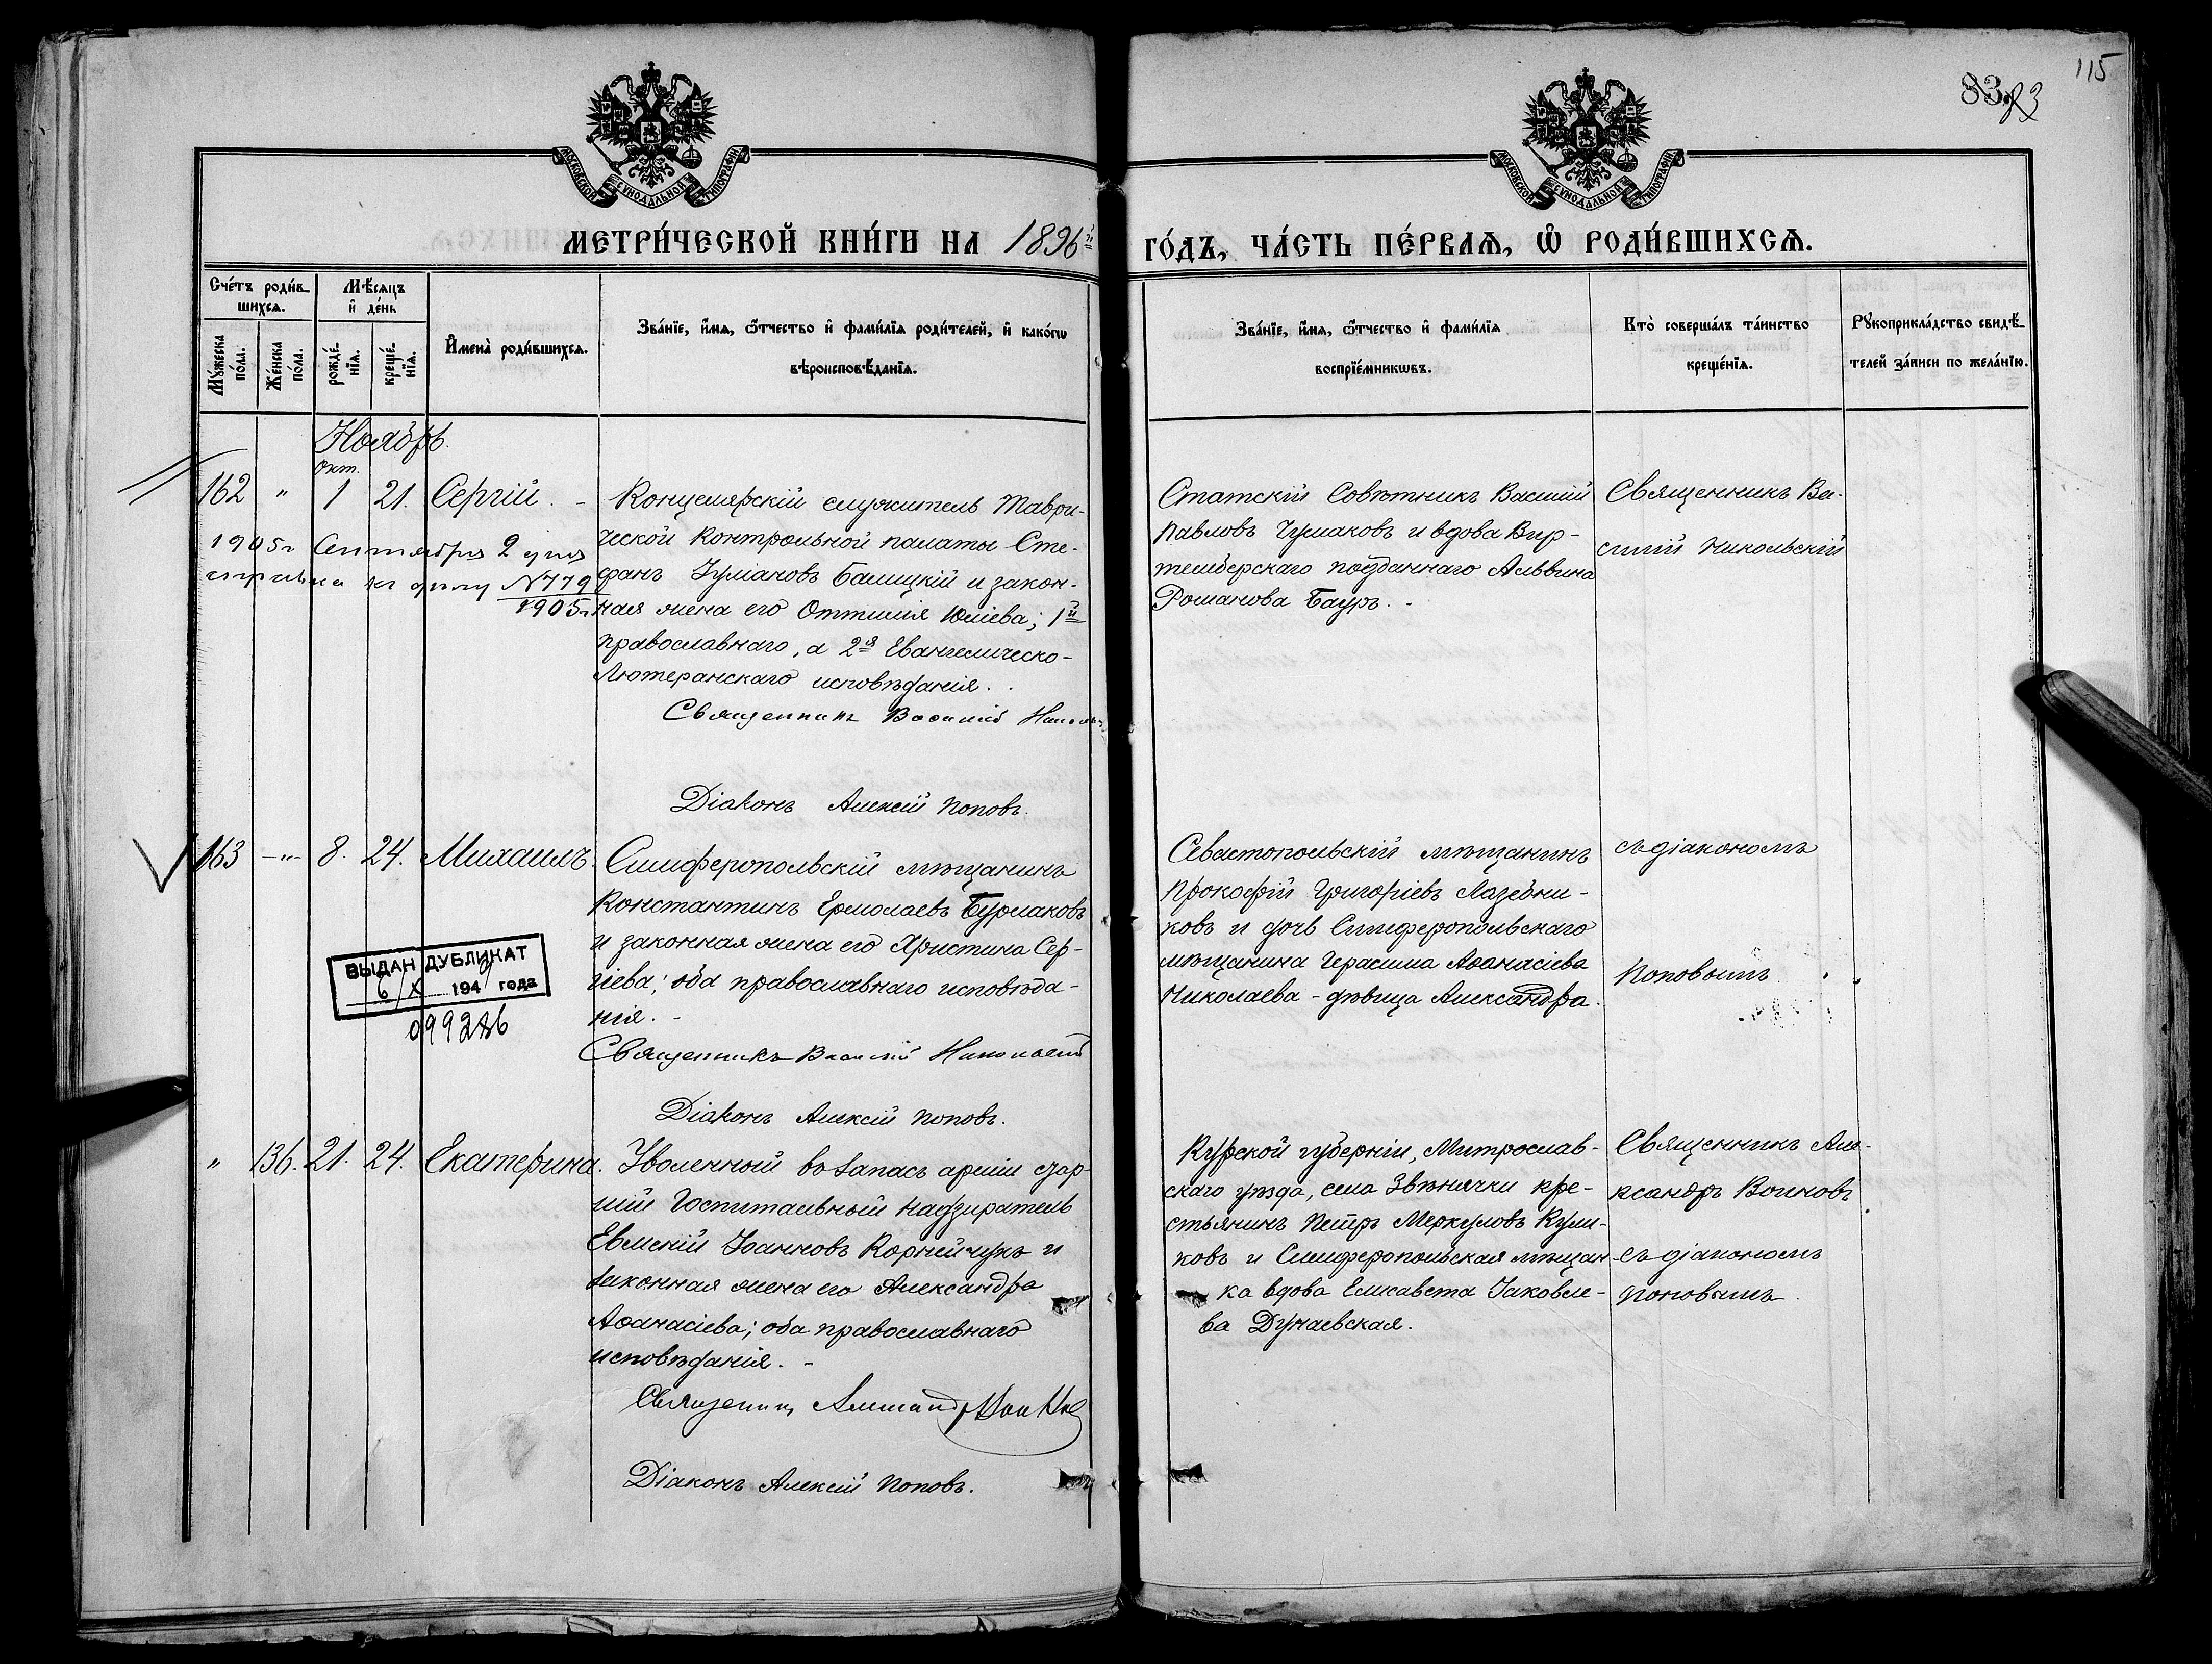 115
83. 83
МОСКОВСКОЙ СѴНОДАЛЬНОЙ ТИПОГРАФІИ
МОСКОВСКОЙ СѴНОДАЛЬНОЙ ТИПОГРАФІИ
МЕТРИ́ЧЕСКОЙ КНИ́ГИ НА 1896й
ГО́ДЪ, ЧА́СТЬ ПЕ́РВАѦ, Ѽ РОДИ́ВШИХСѦ.
Сче́тъ роди́в-
шихсѧ.
Мꙋ́жеска по́ла.
Же́нска по́ла.
Мѣ́сѧцъ
и҆ де́нь
рожде́-
нїѧ.
креще́-
нїѧ.
И҆мена̀ роди́вшихсѧ.
Зва́нїе, и҆́мѧ, ѻ҆́тчество и҆ фами́лїѧ роди́телей, и҆ како́гѡ
вѣроисповѣ́данїѧ.
Зва́нїе, и҆́мѧ, ѻ҆́тчество и҆ фами́лїѧ
воспрїе́мникѡвъ.
Кто̀ соверша́лъ та́инство
креще́нїѧ.
Рꙋкоприкла́дство свидѣ́-
телей за́писи по жела́нїю.
Ноябрь.
Окт.
162 " 1 21. Сергій. -
1905г Сентября 2 дня
справка къ делу №779
1905г.
Концелярскій служитель Таври-
ческой Контрольной палаты Сте-
фанъ Іуліановъ Балицкій и закон-
ная жена его Оттилія Юліева; 1й
православнаго, а 2я Евангелическо-
Лютеранскаго исповѣданія.
Священникъ Василій Николь
Діаконъ Алексій Поповъ.
Статскій Совѣтникъ Василій
Павловъ Чумаковъ и вдова Вир-
тембергскаго подданнаго Альвина
Романова Бауръ. -
Священникъ Ва-
силій Никольскій
163 -"- 8. 24. Михаилъ.
ВЫДАН ДУБЛИКАТ
6/X 194 года
099286
Симферопольскій мѣщанинъ
Константинъ Ермолаевъ Бурлаковъ
и законная жена его Христина Сер-
гіева; оба православнаго исповѣда-
нія. -
Священникъ Василій Никольскій
Діаконъ Алексій Поповъ.
Севастопольскій мѣщанинъ
Прокофій Григоріевъ Лазебни-
ковъ и дочь Симферопольскаго
мѣщанина Герасима Аѳанасіева
Николаева - дѣвица Александра.
съ діакономъ
Поповымъ
" 136. 21. 24. Екатерина.
Уволенный въ запасъ арміи стар-
шій Госпитальный надзиратель
Евменій Іоанновъ Корнейчукъ и
законная жена его Александра
Аѳанасіева; оба православнаго
исповѣданія. -
Священникъ Александръ Воиновъ
Діаконъ Алексій Поповъ.
Курской губерніи, Митрослав-
скаго уѣзда, села Звѣнячки кре-
стьянинъ Петръ Меркуловъ Кули-
ковъ и Симферопольская мѣщан-
ка вдова Елисавета Іаковле-
ва Дунаевская.
Священникъ Але-
ксандръ Воиновъ
съ діакономъ
Поповымъ.